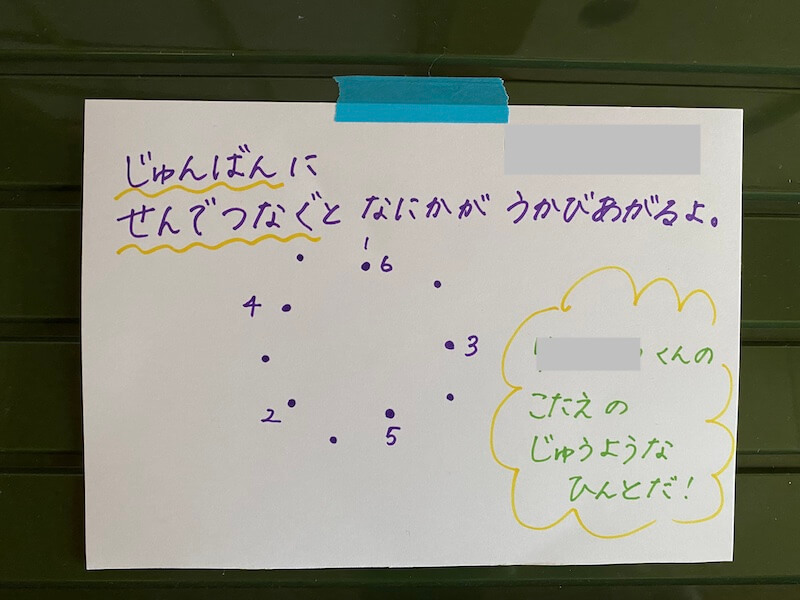 じゅんばんに
せんでつなぐと なにかが うかびあがるよ。
1
6
4
3
2
5
くんの
こたえの
じゅうような
ひんとだ!